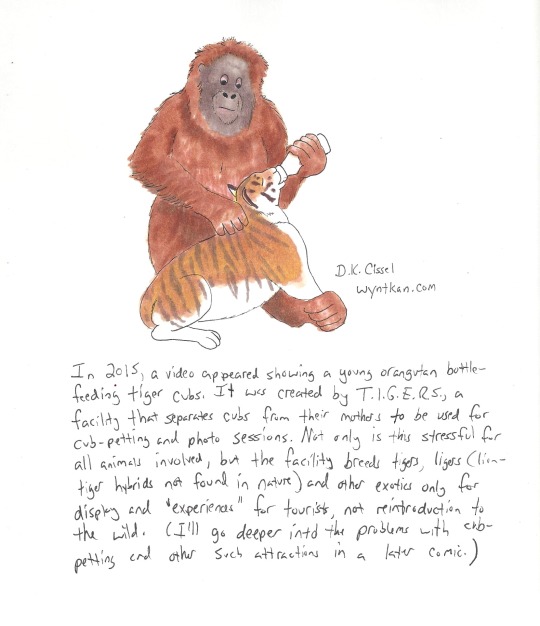 D.K. Cissel
wyntkan.com
In 2015, a video appeared showing a young orangutan bottle-
feeding tiger cubs. It was created by T.I.G.E.R.S., a
facility that separates cubs from their mothers to be used for
cub-petting and photo sessions. Not only is this stressful for
all animals involved, but the facility breeds tigers, ligers (lion-
tiger hybrids not found in nature) and other exotics only for
display and "experiences" for tourists, not reintroduction to
the wild. (I'll go deeper into the problems with cub-
petting and other such attractions in a later comic.)